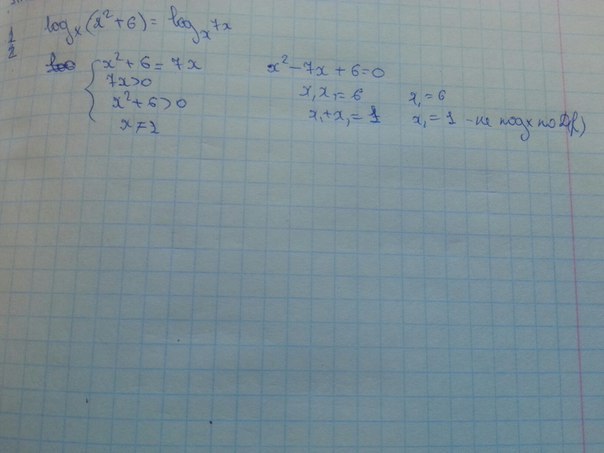 1 log_x(x²+6) = log_x 7x
2
x²+6 = 7x
7x>0
x²+6>0
x≠1
x²-7x+6=0
x₁x₁=6
x₁+x₁=
x₁=6
x₁=1 - не подх по D(f)